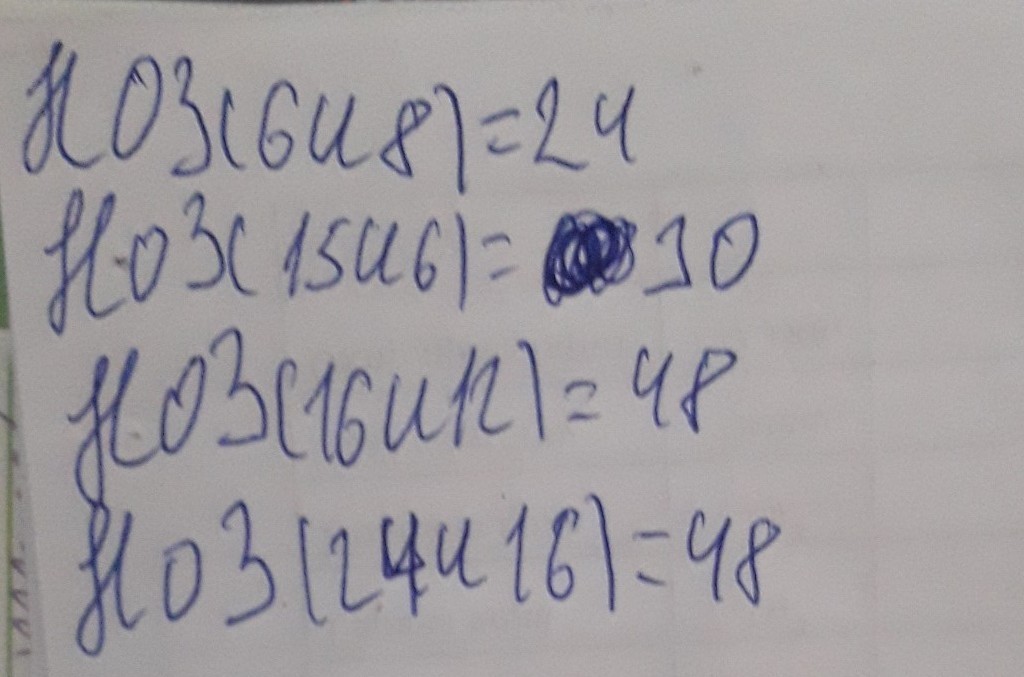 НОЗ(6и8)=24
НОЗ(15и6)= 30
НОЗ(16и12)=48
НОЗ(24и16)=48